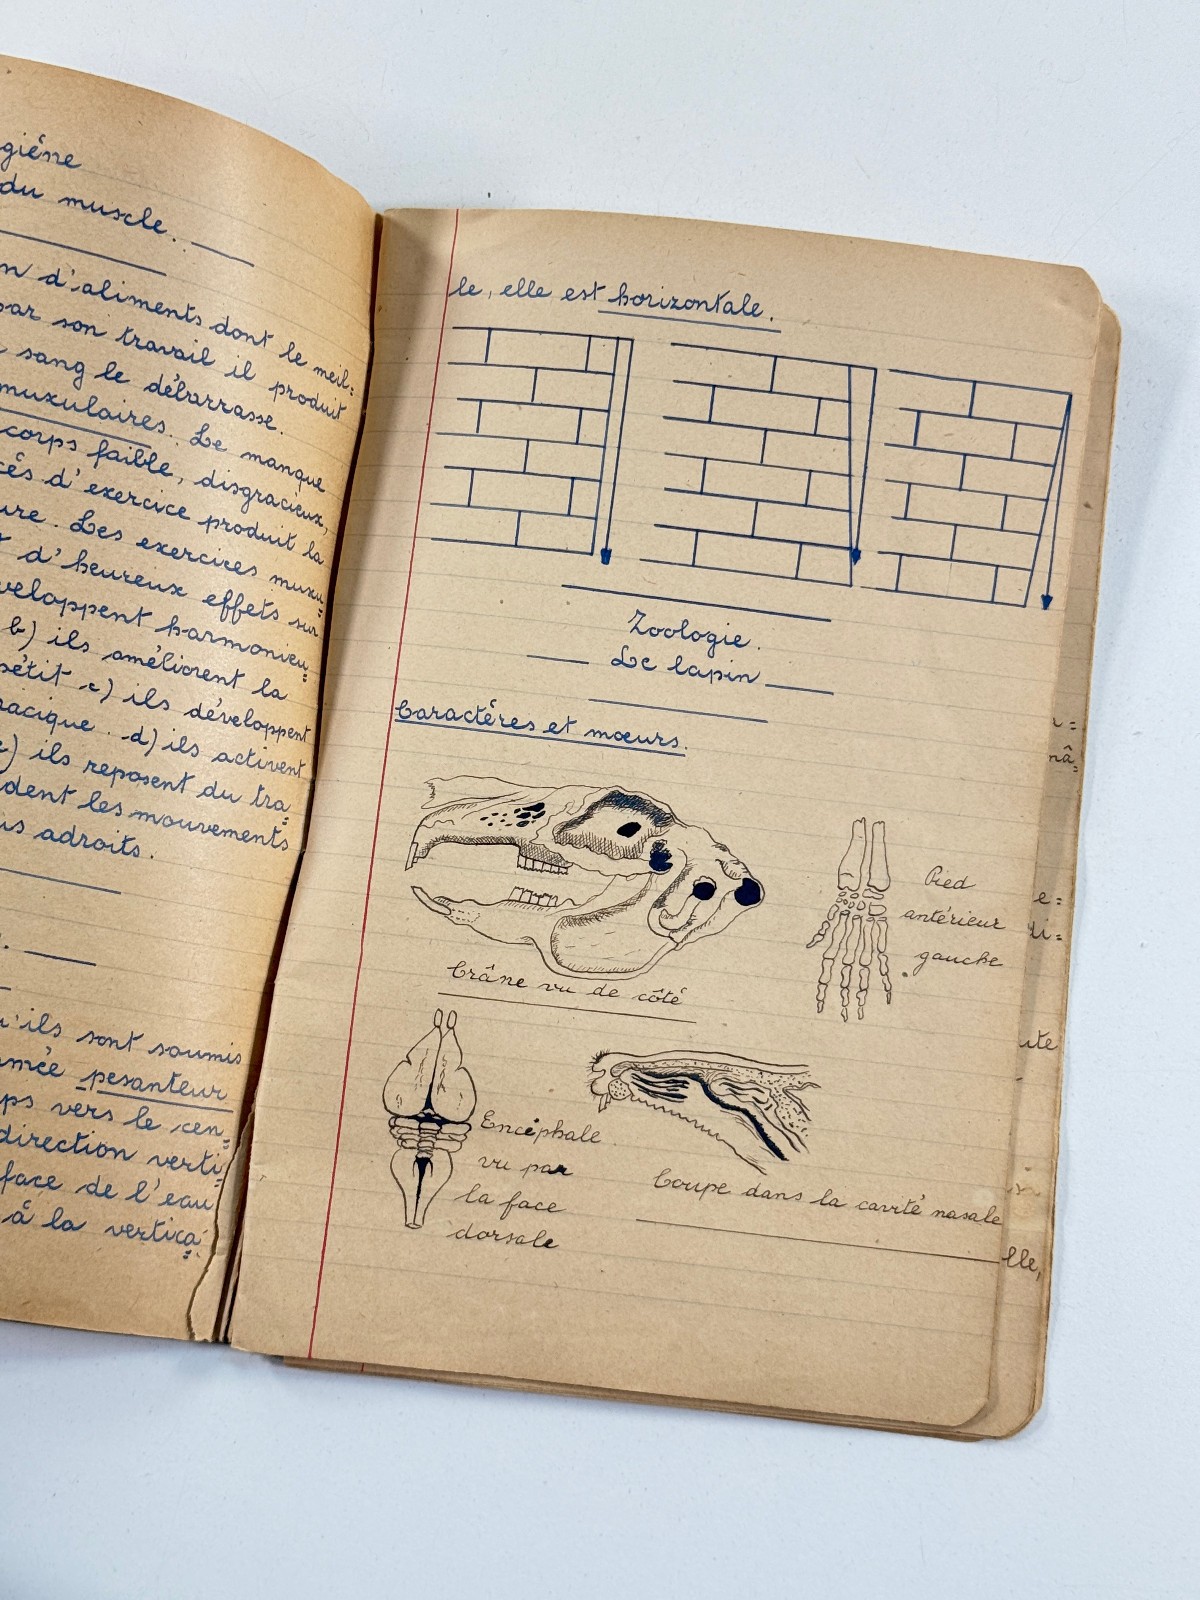 giéne
du muscle.
n d'aliments dont le meil=
par son travail il produit
sang le débarrasse.
muxulaires. Le manque
corps faible, disgracieux,
cés d'exercice produit la
ure. Les exercices muxu=
t d'heureux effets sur
veloppent harmonieu=
b) ils améliorent la
pétit c) ils développent
racique. d) ils activent
e) ils reposent du tra=
dent les mouvements
us adroits.
u'ils sont soumis
mée pesanteur
ps vers le cen=
direction verti=
face de l'eau
à la vertica=
le, elle est horizontale.
Zoologie.
Le lapin
Caractères et mœurs.
Crâne vu de côté
Pied
antérieur
gauche
Encéphale
vu par
la face
dorsale
Coupe dans la cavité nasale
nâ=
e=
di=
ute
lle,